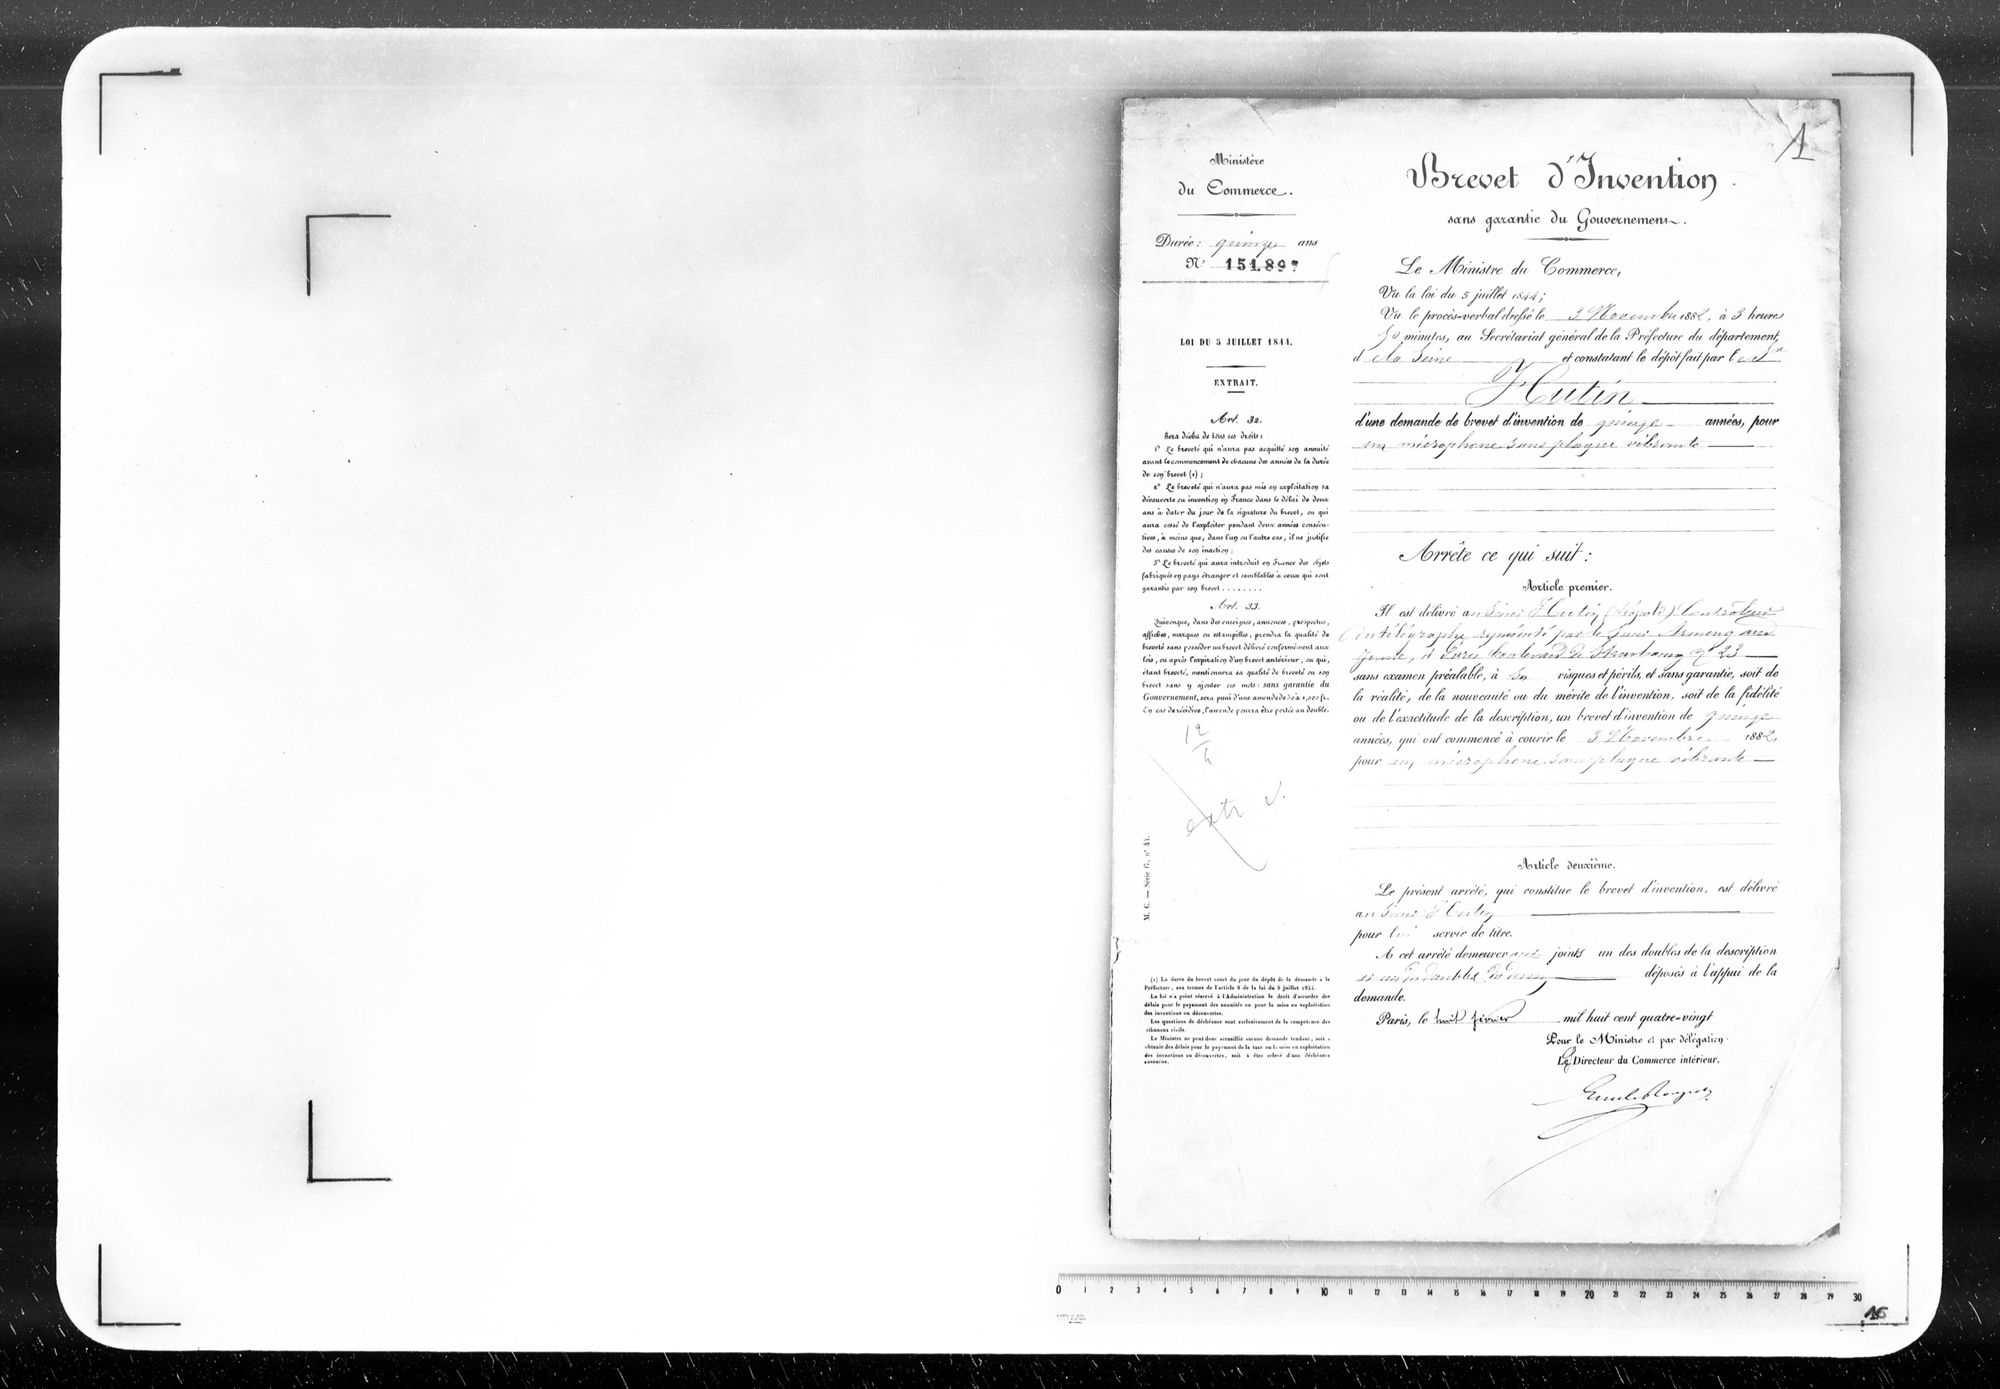 1
Ministère
du Commerce.
Durée: quinze ans
N° 151.897
LOI DU 5 JUILLET 1844.
EXTRAIT.
Art. 32.
Sera déchu de tous ses droits:
1° Le breveté qui n'aura pas acquitté son annuité
avant le commencement de chacune des années de la durée
de son brevet (1);
2° Le breveté qui n'aura pas mis en exploitation sa
découverte ou invention en France dans le délai de deux
ans à dater du jour de la signature du brevet, ou qui
aura cessé de l'exploiter pendant deux années consécu-
tives, à moins que, dans l'un ou l'autre cas, il ne justifie
des causes de son inaction;
3° Le breveté qui aura introduit en France des objets
fabriqués en pays étranger et semblables à ceux qui sont
garantis par son brevet........
Art. 33.
Quiconque, dans des enseignes, annonces, prospectus,
affiches, marques ou estampilles, prendra la qualité de
breveté sans posséder un brevet délivré conformément aux
lois, ou après l'expiration d'un brevet antérieur, ou qui,
étant breveté, mentionnera sa qualité de breveté ou son
brevet sans y ajouter ces mots: sans garantie du
Gouvernement, sera puni d'une amende de 50 à 1,000 fr.
En cas de récidive, l'amende pourra être portée au double.
12
extr
M. C. — Série G, n° 41.
(1) La durée du brevet court du jour du dépôt de la demande à la
Préfecture, aux termes de l'article 8 de la loi du 5 juillet 1844.
La loi n'a point réservé à l'Administration le droit d'accorder des
délais pour le payement des annuités ou pour la mise en exploitation
des inventions ou découvertes.
Les questions de déchéance sont exclusivement de la compétence des
tribunaux civils.
Le Ministre ne peut donc accueillir aucune demande tendant, soit à
obtenir des délais pour le payement de la taxe ou la mise en exploitation
des inventions ou découvertes, soit à être relevé d'une déchéance
encourue.
Brevet d'Invention
sans garantie du Gouvernement.
Le Ministre du Commerce,
Vu la loi du 5 juillet 1844;
Vu le procès-verbal dressé le 3 Novembre 1882, à 3 heures
50 minutes, au Secrétariat général de la Préfecture du département
d e la Seine et constatant le dépôt fait par le Sr
Hutin
d'une demande de brevet d'invention de quinze années, pour
un microphone sans plaque vibrante
Arrête ce qui suit:
Article premier.
Il est délivré au Sieur Hutin (Léopold) Contrôleur
du télégraphe représenté par le Sieur Armengaud
jeune, à Paris boulevard de Strasbourg n° 23
sans examen préalable, à ses risques et périls, et sans garantie, soit de
la réalité, de la nouveauté ou du mérite de l'invention, soit de la fidélité
ou de l'exactitude de la description, un brevet d'invention de quinze
années, qui ont commencé à courir le 3 Novembre 1882,
pour un microphone sans plaque vibrante
Article deuxième.
Le présent arrêté, qui constitue le brevet d'invention, est délivré
au Sieur Hutin
pour lui servir de titre.
A cet arrêté demeureront joints un des doubles de la description
et un des doubles du dessin déposés à l'appui de la
demande.
Paris, le huit février mil huit cent quatre-vingt
Pour le Ministre et par délégation.
Le Directeur du Commerce intérieur.
0 1 2 3 4 5 6 7 8 9 10 11 12 13 14 15 16 17 18 19 20 21 22 23 24 25 26 27 28 29 30